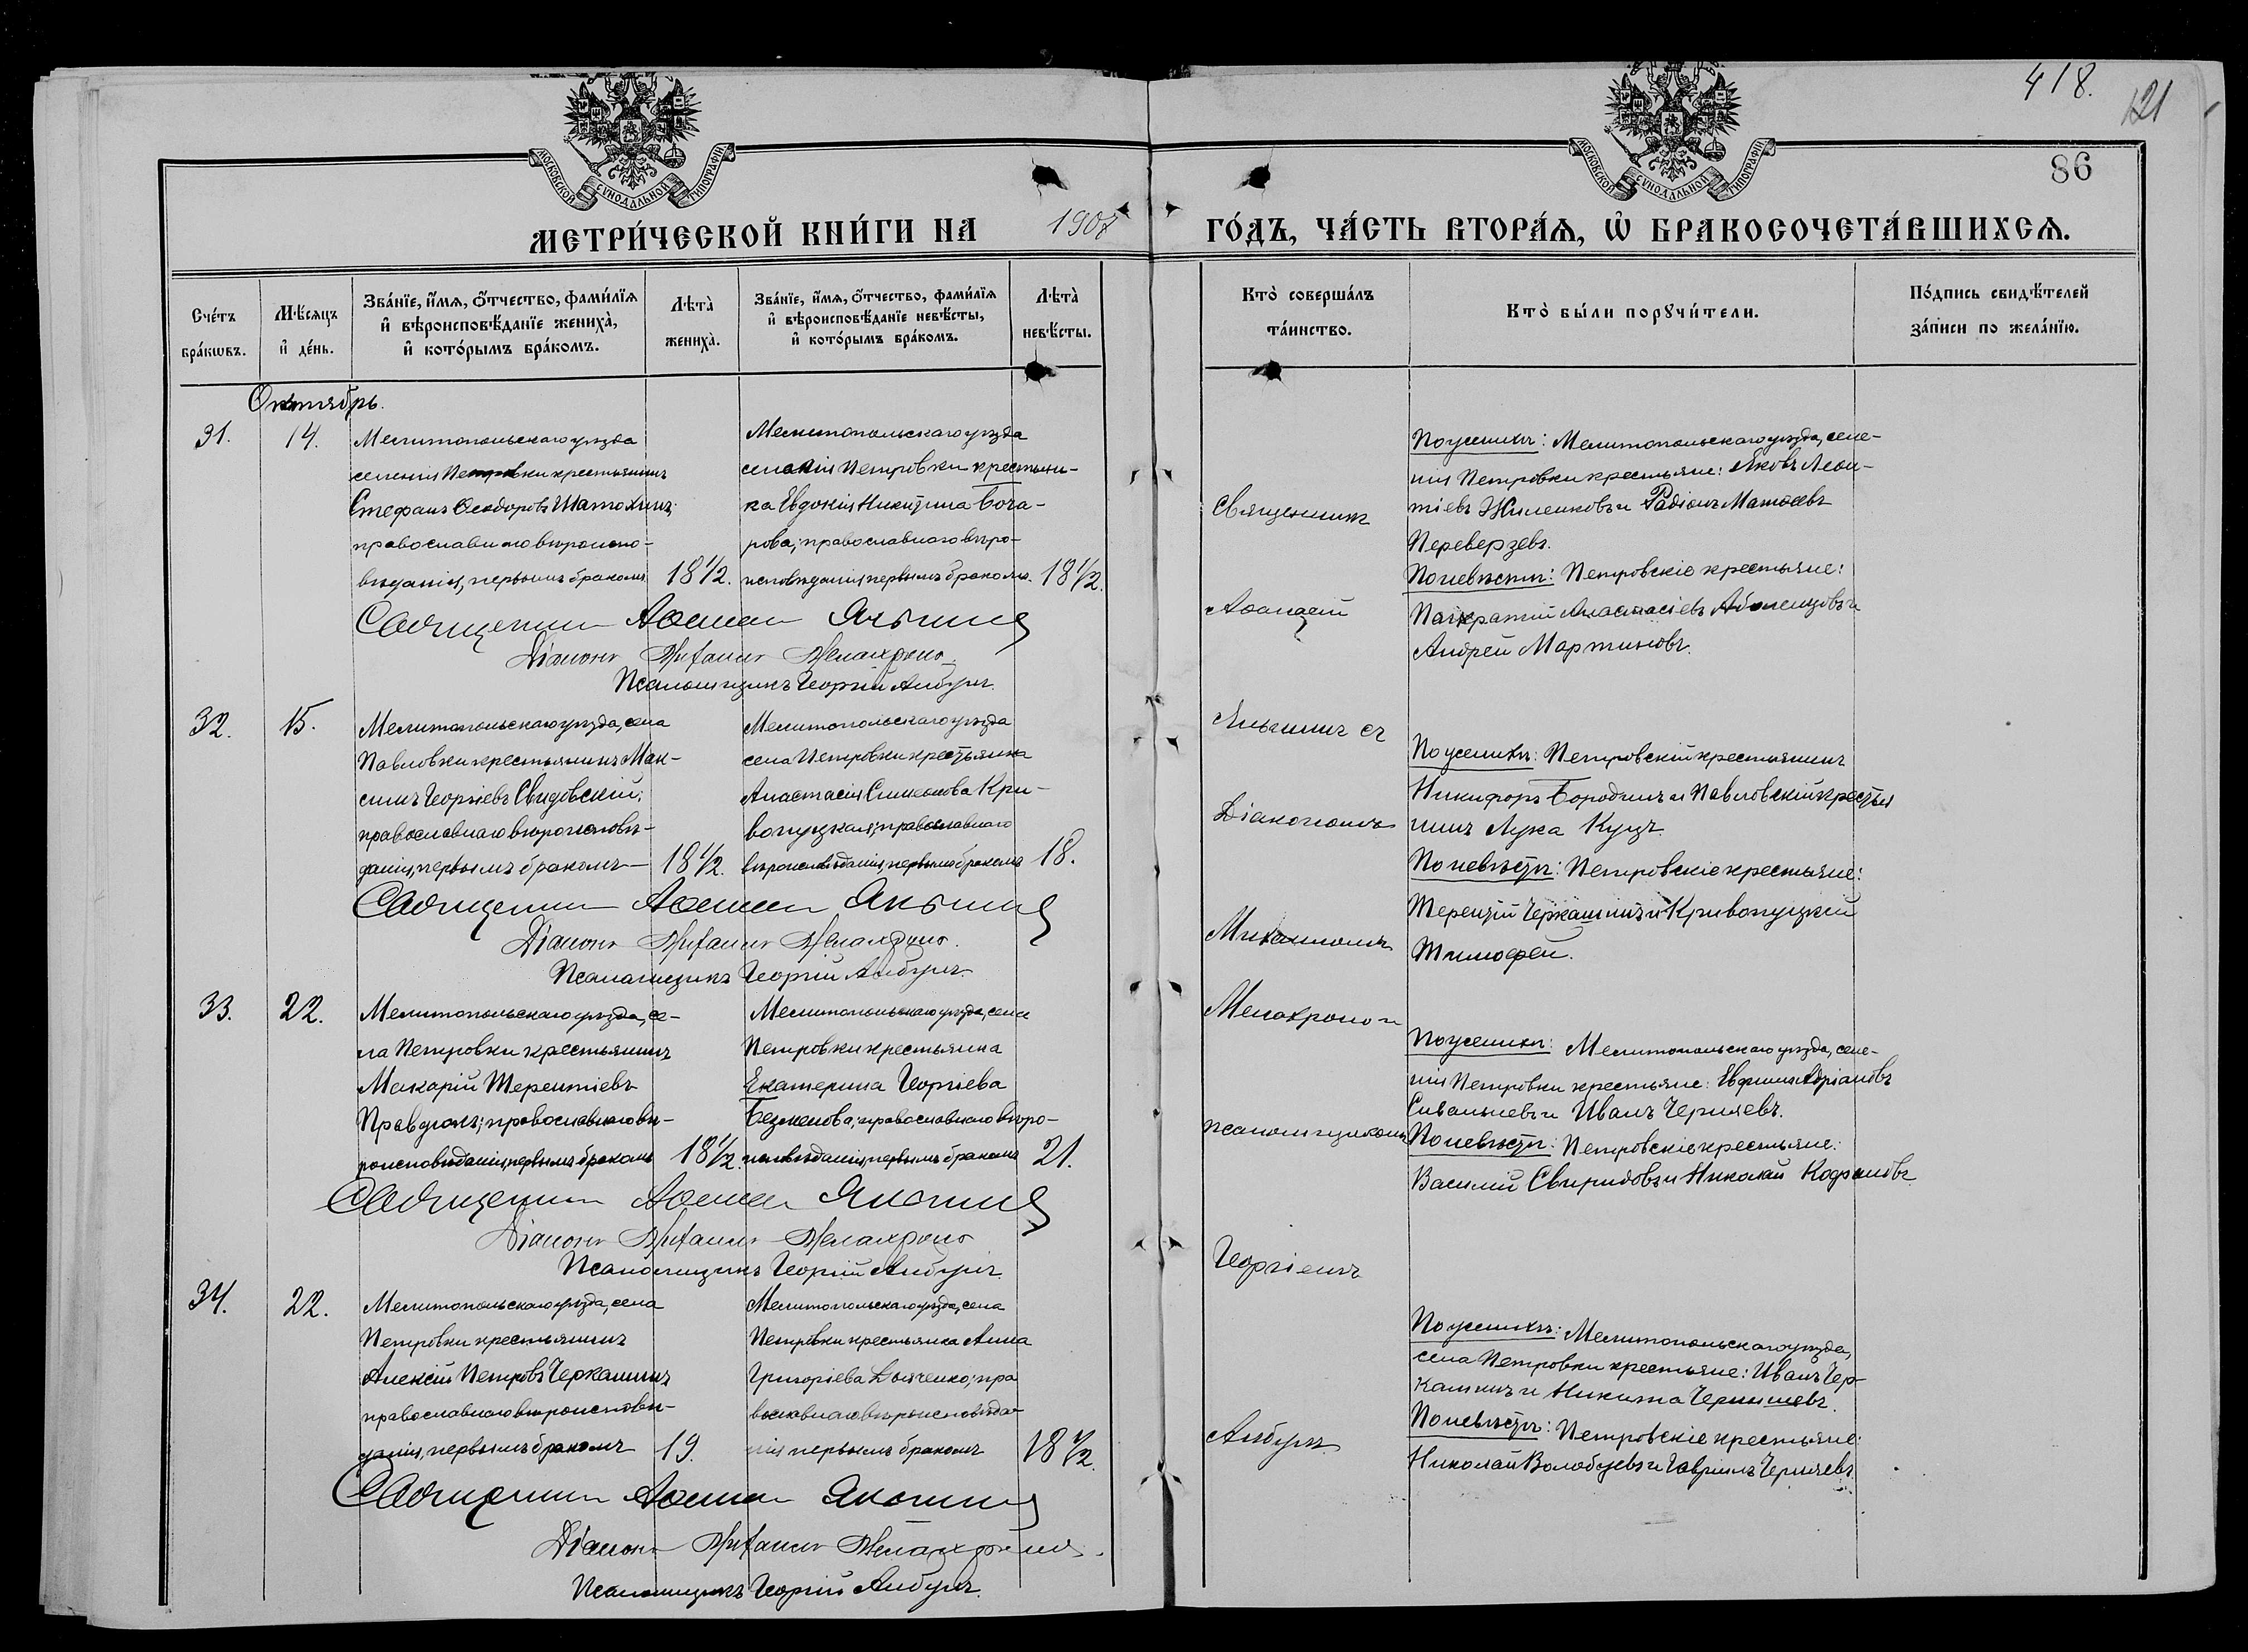 418.
121
86
МОСКОВСКОЙ СѴНОДАЛЬНОЙ ТИПОГРАФІИ
МОСКОВСКОЙ СѴНОДАЛЬНОЙ ТИПОГРАФІИ
МЕТРИ́ЧЕСКОЙ КНИ́ГИ НА 1907 ГО́ДЪ, ЧА́СТЬ ВТОРА́Я, Ѡ҆ БРАКОСОЧЕТА́ВШИХСЯ.
Сче́тъ бра́кѡвъ.
Мѣ́сяцъ и҆ де́нь.
Зва́нїе, и҆́мя, ѻ҆́тчество, фами́лїя
и҆ вѣроисповѣ́данїе жениха̀,
и҆ кото́рымъ бра́комъ.
Лѣта̀ жениха̀.
Зва́нїе, и҆́мя, ѻ҆́тчество, фами́лїя
и҆ вѣроисповѣ́данїе невѣ́сты,
и҆ кото́рымъ бра́комъ.
Лѣта̀ невѣ́сты.
Кто̀ соверша́лъ
та́инство.
Кто̀ бы́ли порꙋчи́тели.
По́дпись свидѣ́телей
за́писи по жела́нїю.
Октябрь.
31.
14.
Мелитопольскаго уѣзда
селенія Петровки крестьянинъ
Стефанъ Ѳеодоровъ Шатохинъ;
православнаго вѣроиспо-
вѣданія, первымъ бракомъ
18 1/2.
Мелитопольскаго уѣзда
селенія Петровки крестьян-
ка Евдокія Никитина Боча-
рова; православнаго вѣро-
исповѣданія, первымъ бракомъ.
18 1/2.
Священникъ
Аѳанасій
По женихѣ: Мелитопольскаго уѣзда, селе-
нія Петровки крестьяне: Яковъ Леон-
тіевъ Жиленковъ и Радіонъ Матѳеевъ
Переверзевъ.
По невѣстѣ: Петровскіе крестьяне:
Панкратій Анастасіевъ и
Андрей Мартиновъ.
Священникъ Аѳанасій Янышинъ
Діаконъ Митрофанъ
Псаломщикъ Георгій Анбуръ.
32.
15.
Мелитопольскаго уѣзда, села
Павловки крестьянинъ Мак-
симъ Георгіевъ Свидовскій;
православнаго вѣроисповѣ-
данія, первымъ бракомъ
18 1/2.
Мелитопольскаго уѣзда
села Петровки крестьянка
Анастасія Симеонова Кри-
вопуцкая; православнаго
вѣроисповѣданія, первымъ бракомъ
18.
съ
Діакономъ
По женихѣ: Петровскій крестьянинъ
Никифоръ Бородинъ и Павловскій крестья
нинъ Лука Куцъ.
По невѣстѣ: Петровскіе крестьяне:
Терентій Черкашинъ и Кривопуцкій
Тимофей.
Священникъ Аѳанасій
Діаконъ
Псаломщикъ Георгій Анбуръ.
33.
22.
Мелитопольскаго уѣзда, се-
ла Петровки крестьянинъ
Макарій Терентіевъ
православнаго вѣ-
роисповѣданія, первымъ бракомъ
18 1/2.
Мелитопольскаго уѣзда, села
Петровки крестьянка
Екатерина Георгіева
Безменова; православнаго вѣро-
исповѣданія, первымъ бракомъ
21.
и
псаломщикомъ
По женихѣ: Мелитопольскаго уѣзда, селе-
нія Петровки крестьяне: Адріановъ
и Иванъ Черняевъ.
По невѣстѣ: Петровскіе крестьяне:
Василій Свиридовъ и Николай
Священникъ Аѳанасій
Діаконъ
Псаломщикъ Георгій Анбуръ.
Георгіемъ
34.
22.
Мелитопольскаго уѣзда, села
Петровки крестьянинъ
Алексій Петровъ Черкашинъ
православнаго вѣроисповѣ-
данія, первымъ бракомъ
19.
Мелитопольскаго уѣзда, села
Петровки крестьянка Анна
Григоріева Дьяченко; пра
вославнаго вѣроисповѣда-
нія первымъ бракомъ
18 1/2.
Анбуръ.
По женихѣ: Мелитопольскаго уѣзда,
села Петровки крестьяне: Иванъ Чер-
кашинъ и Никита Чернышевъ.
По невѣстѣ: Петровскіе крестьяне:
Николай Волобуевъ и Гавріилъ Черняевъ.
Священникъ Аѳанасій
Діаконъ
Псаломщикъ Георгій Анбуръ.